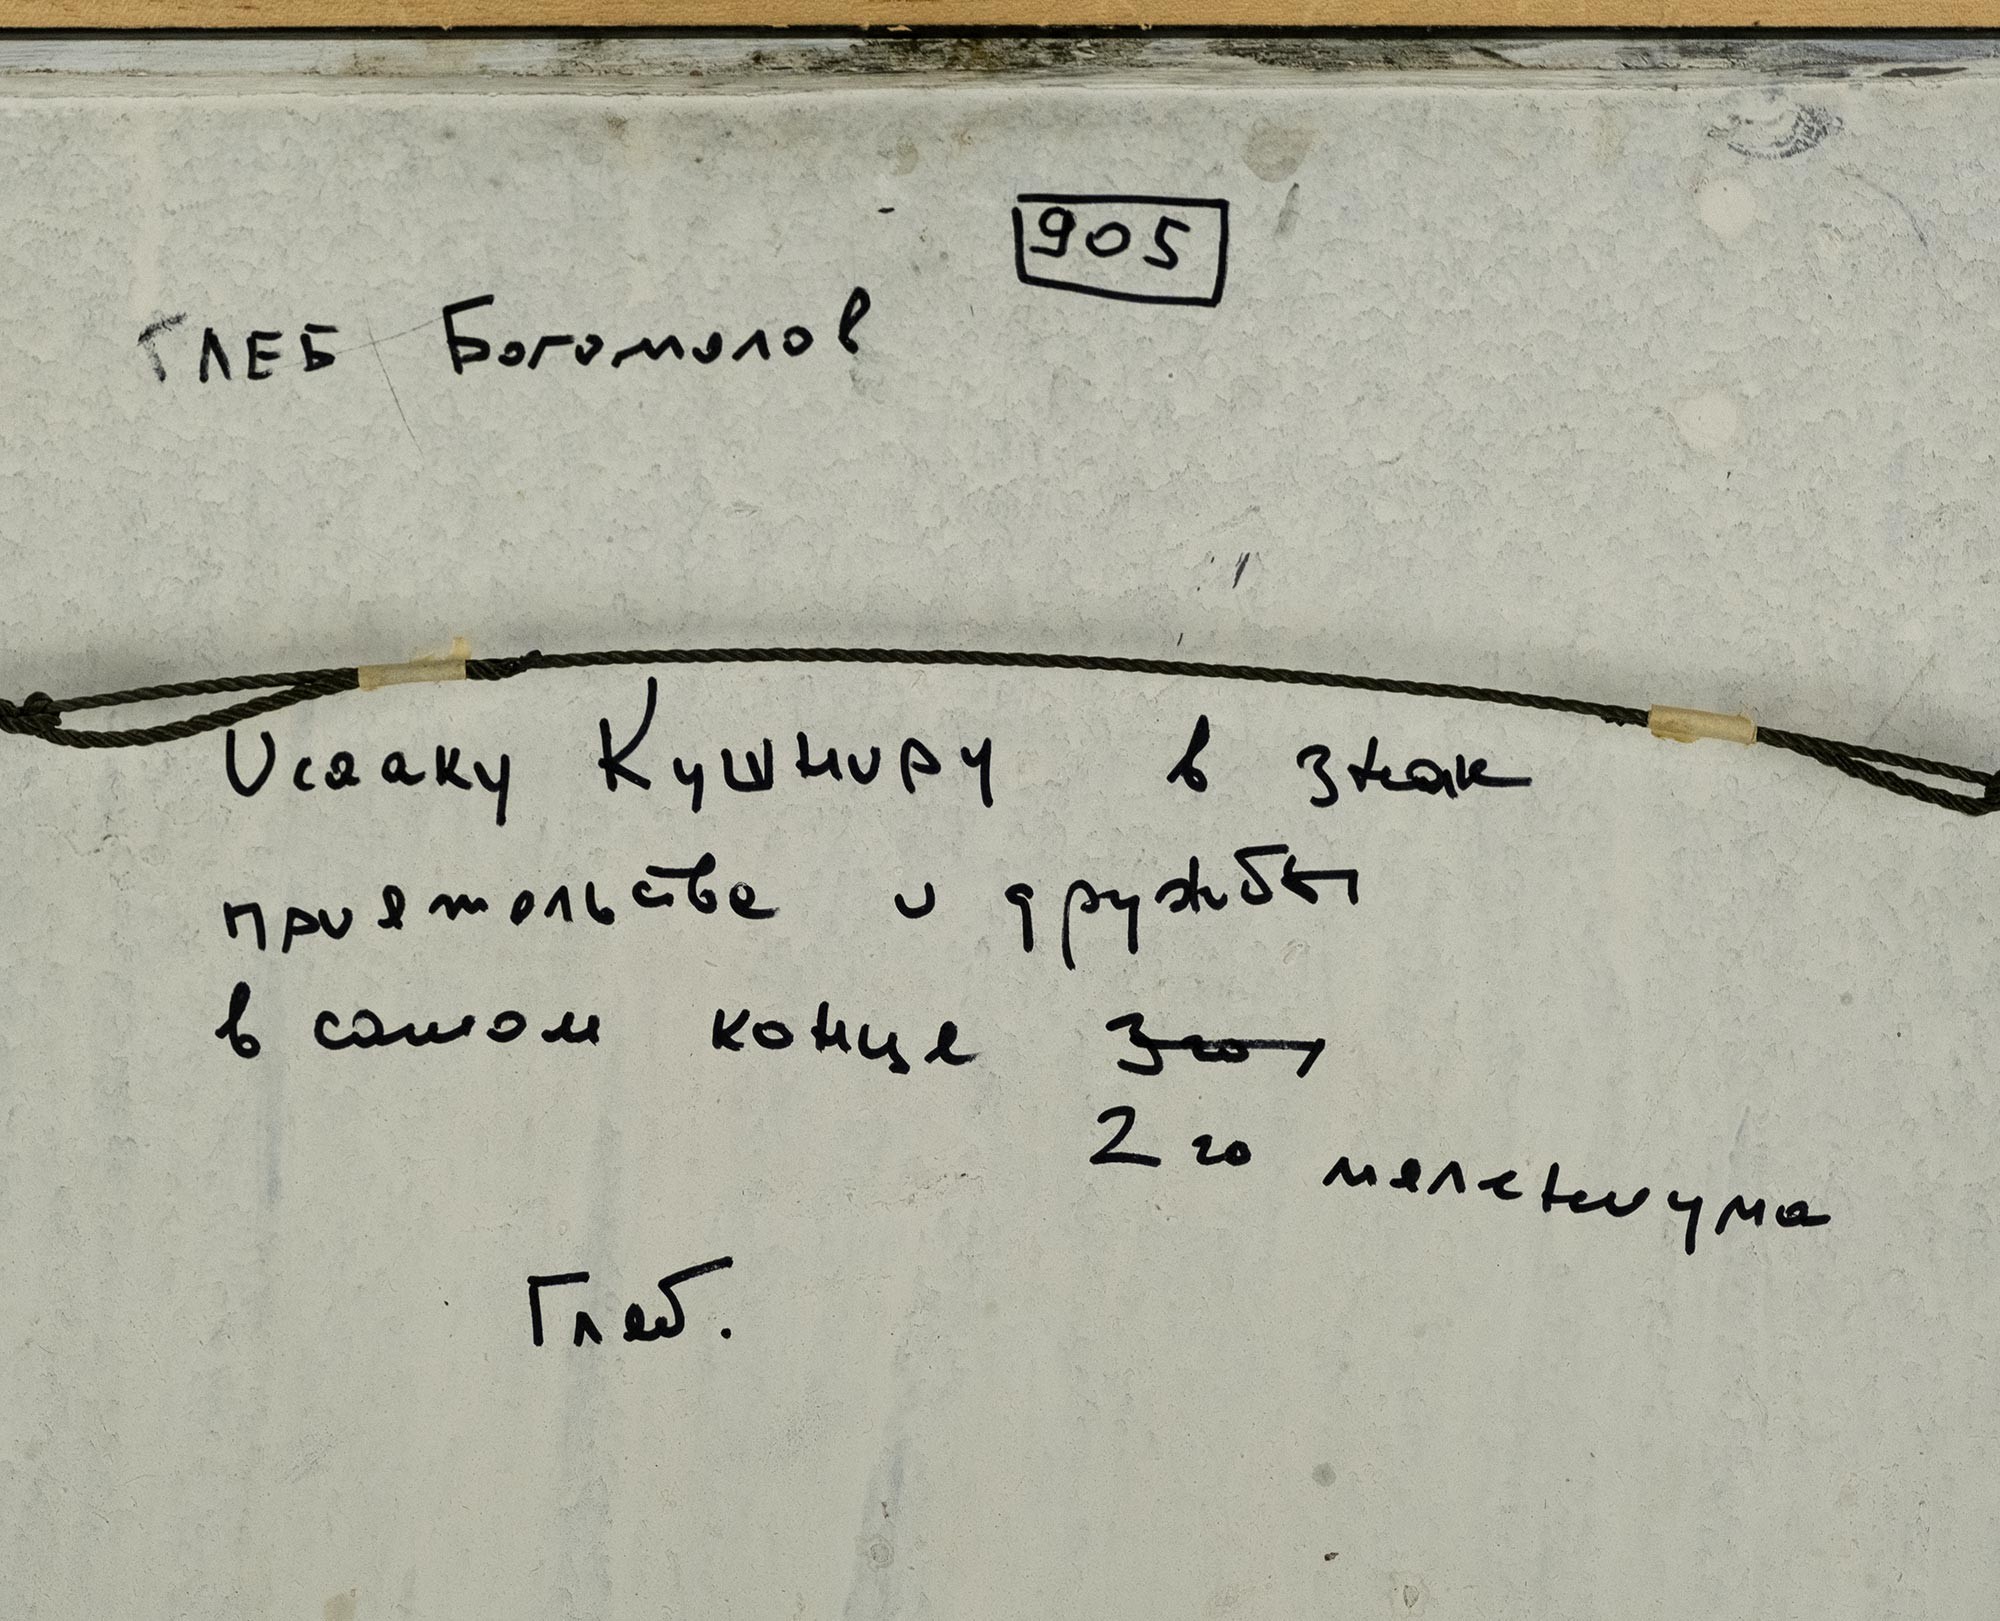 905
ГЛЕБ Богомолов
Исааку Кушниру в знак
приятельства и дружбы
в самом конце 3го
2го мелениума
Глеб.